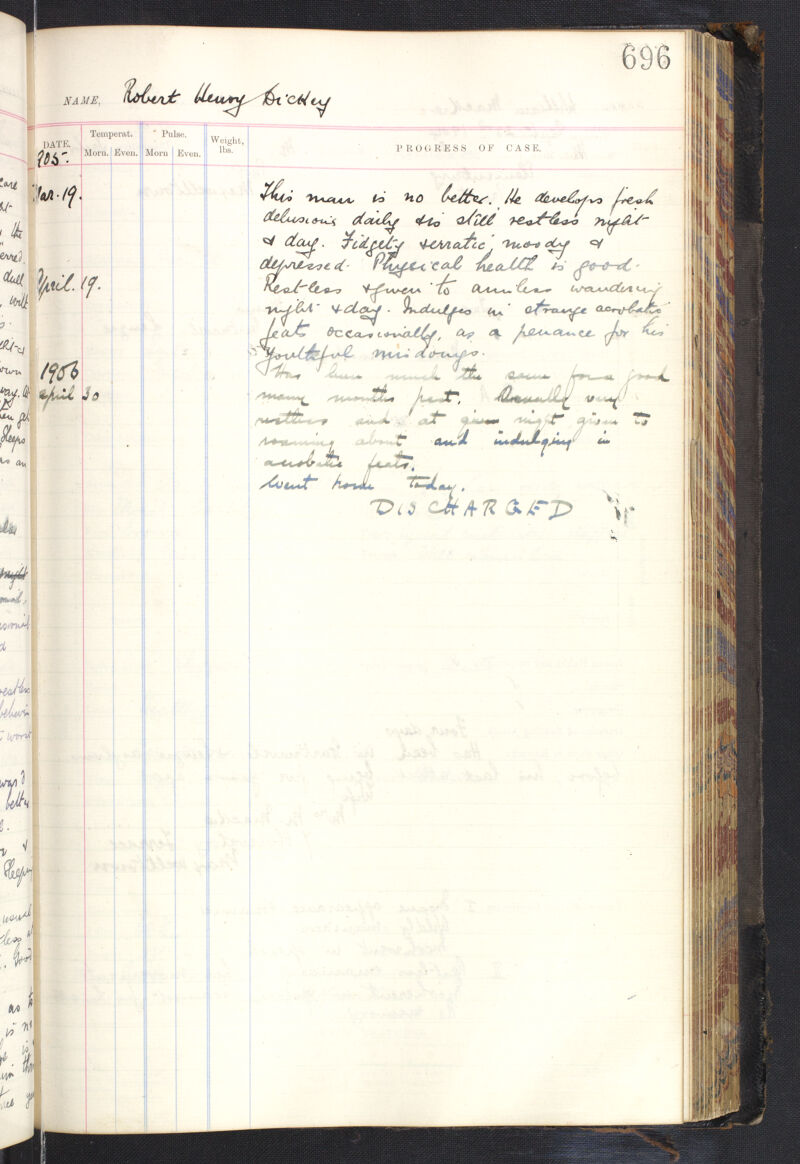 696
NAME, Robert Henry Dickey
DATE. Temperat. Pulse. Weight, lbs. PROGRESS OF CASE.
Morn. Even. Morn Even.
905.
Mar. 19. This man is no better. He develops fresh
delusions daily & is still restless night
& day. Fidgety & erratic, moody &
depressed. Physical health is good.
April. 19. Restless & given to aimless wandering
night & day. Indulges in strange acrobatic
feats occasionally, as a penance for his
youthful misdoings.
1906 Has been much the same for a good
April 30 many months past. Usually very
restless and at night given to
roaming about and indulging in
acrobatic feats.
Went home today.
DISCHARGED